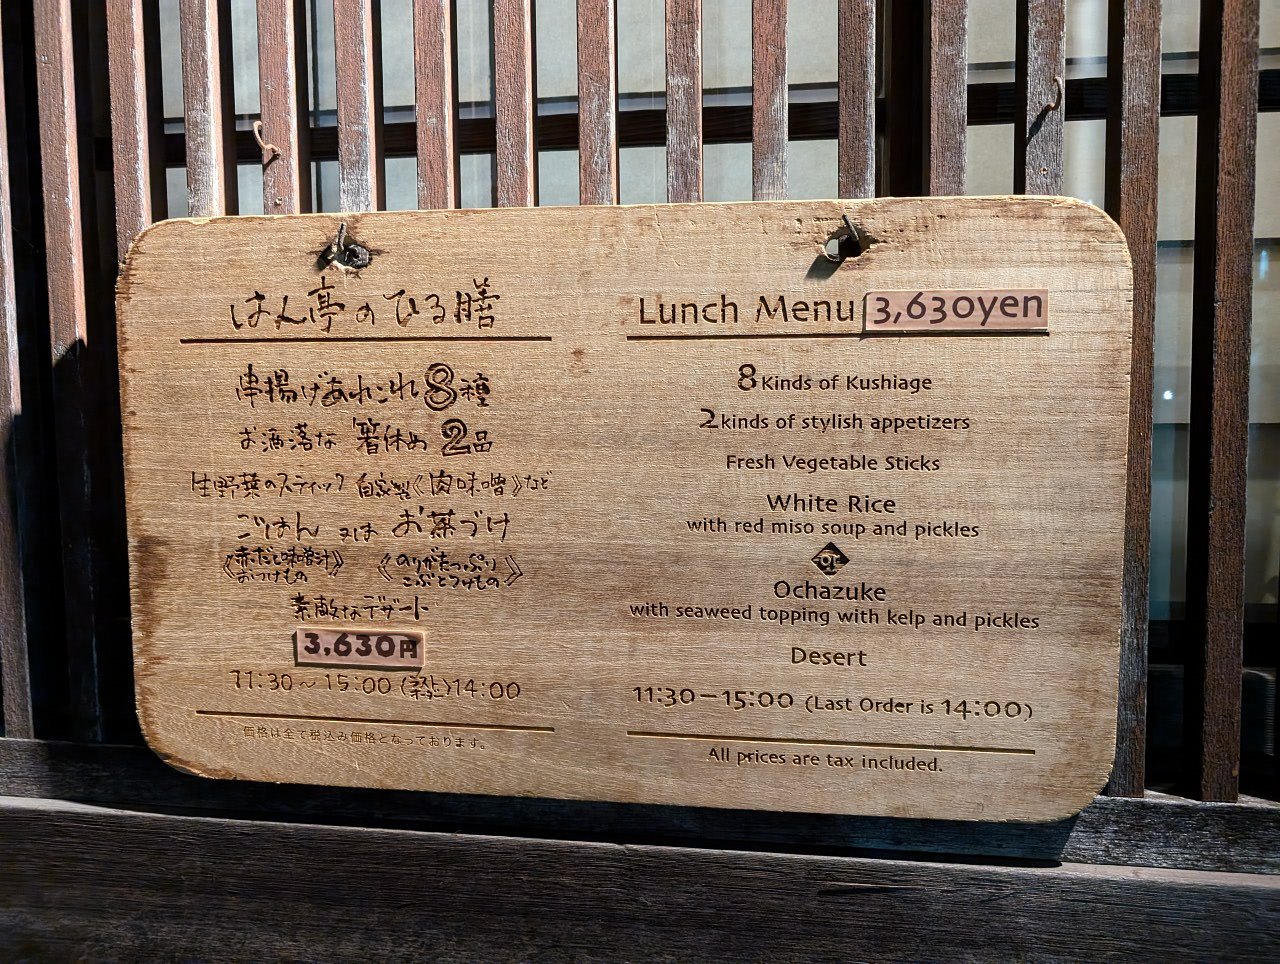 はん亭のひる膳
串揚げあれこれ8種
お洒落な 箸休め 2品
生野菜のスティック 自家製《肉味噌》など
ごはん 又は お茶づけ
《赤だし味噌汁 おつけもの》 《のりがたっぷり こぶとつけもの》
素敵なデザート
3,630円
11:30～15:00 (終止)14:00
価格は全て税込み価格となっております。
Lunch Menu 3,630yen
8 Kinds of Kushiage
2 kinds of stylish appetizers
Fresh Vegetable Sticks
White Rice
with red miso soup and pickles
or
Ochazuke
with seaweed topping with kelp and pickles
Desert
11:30－15:00 (Last Order is 14:00)
All prices are tax included.